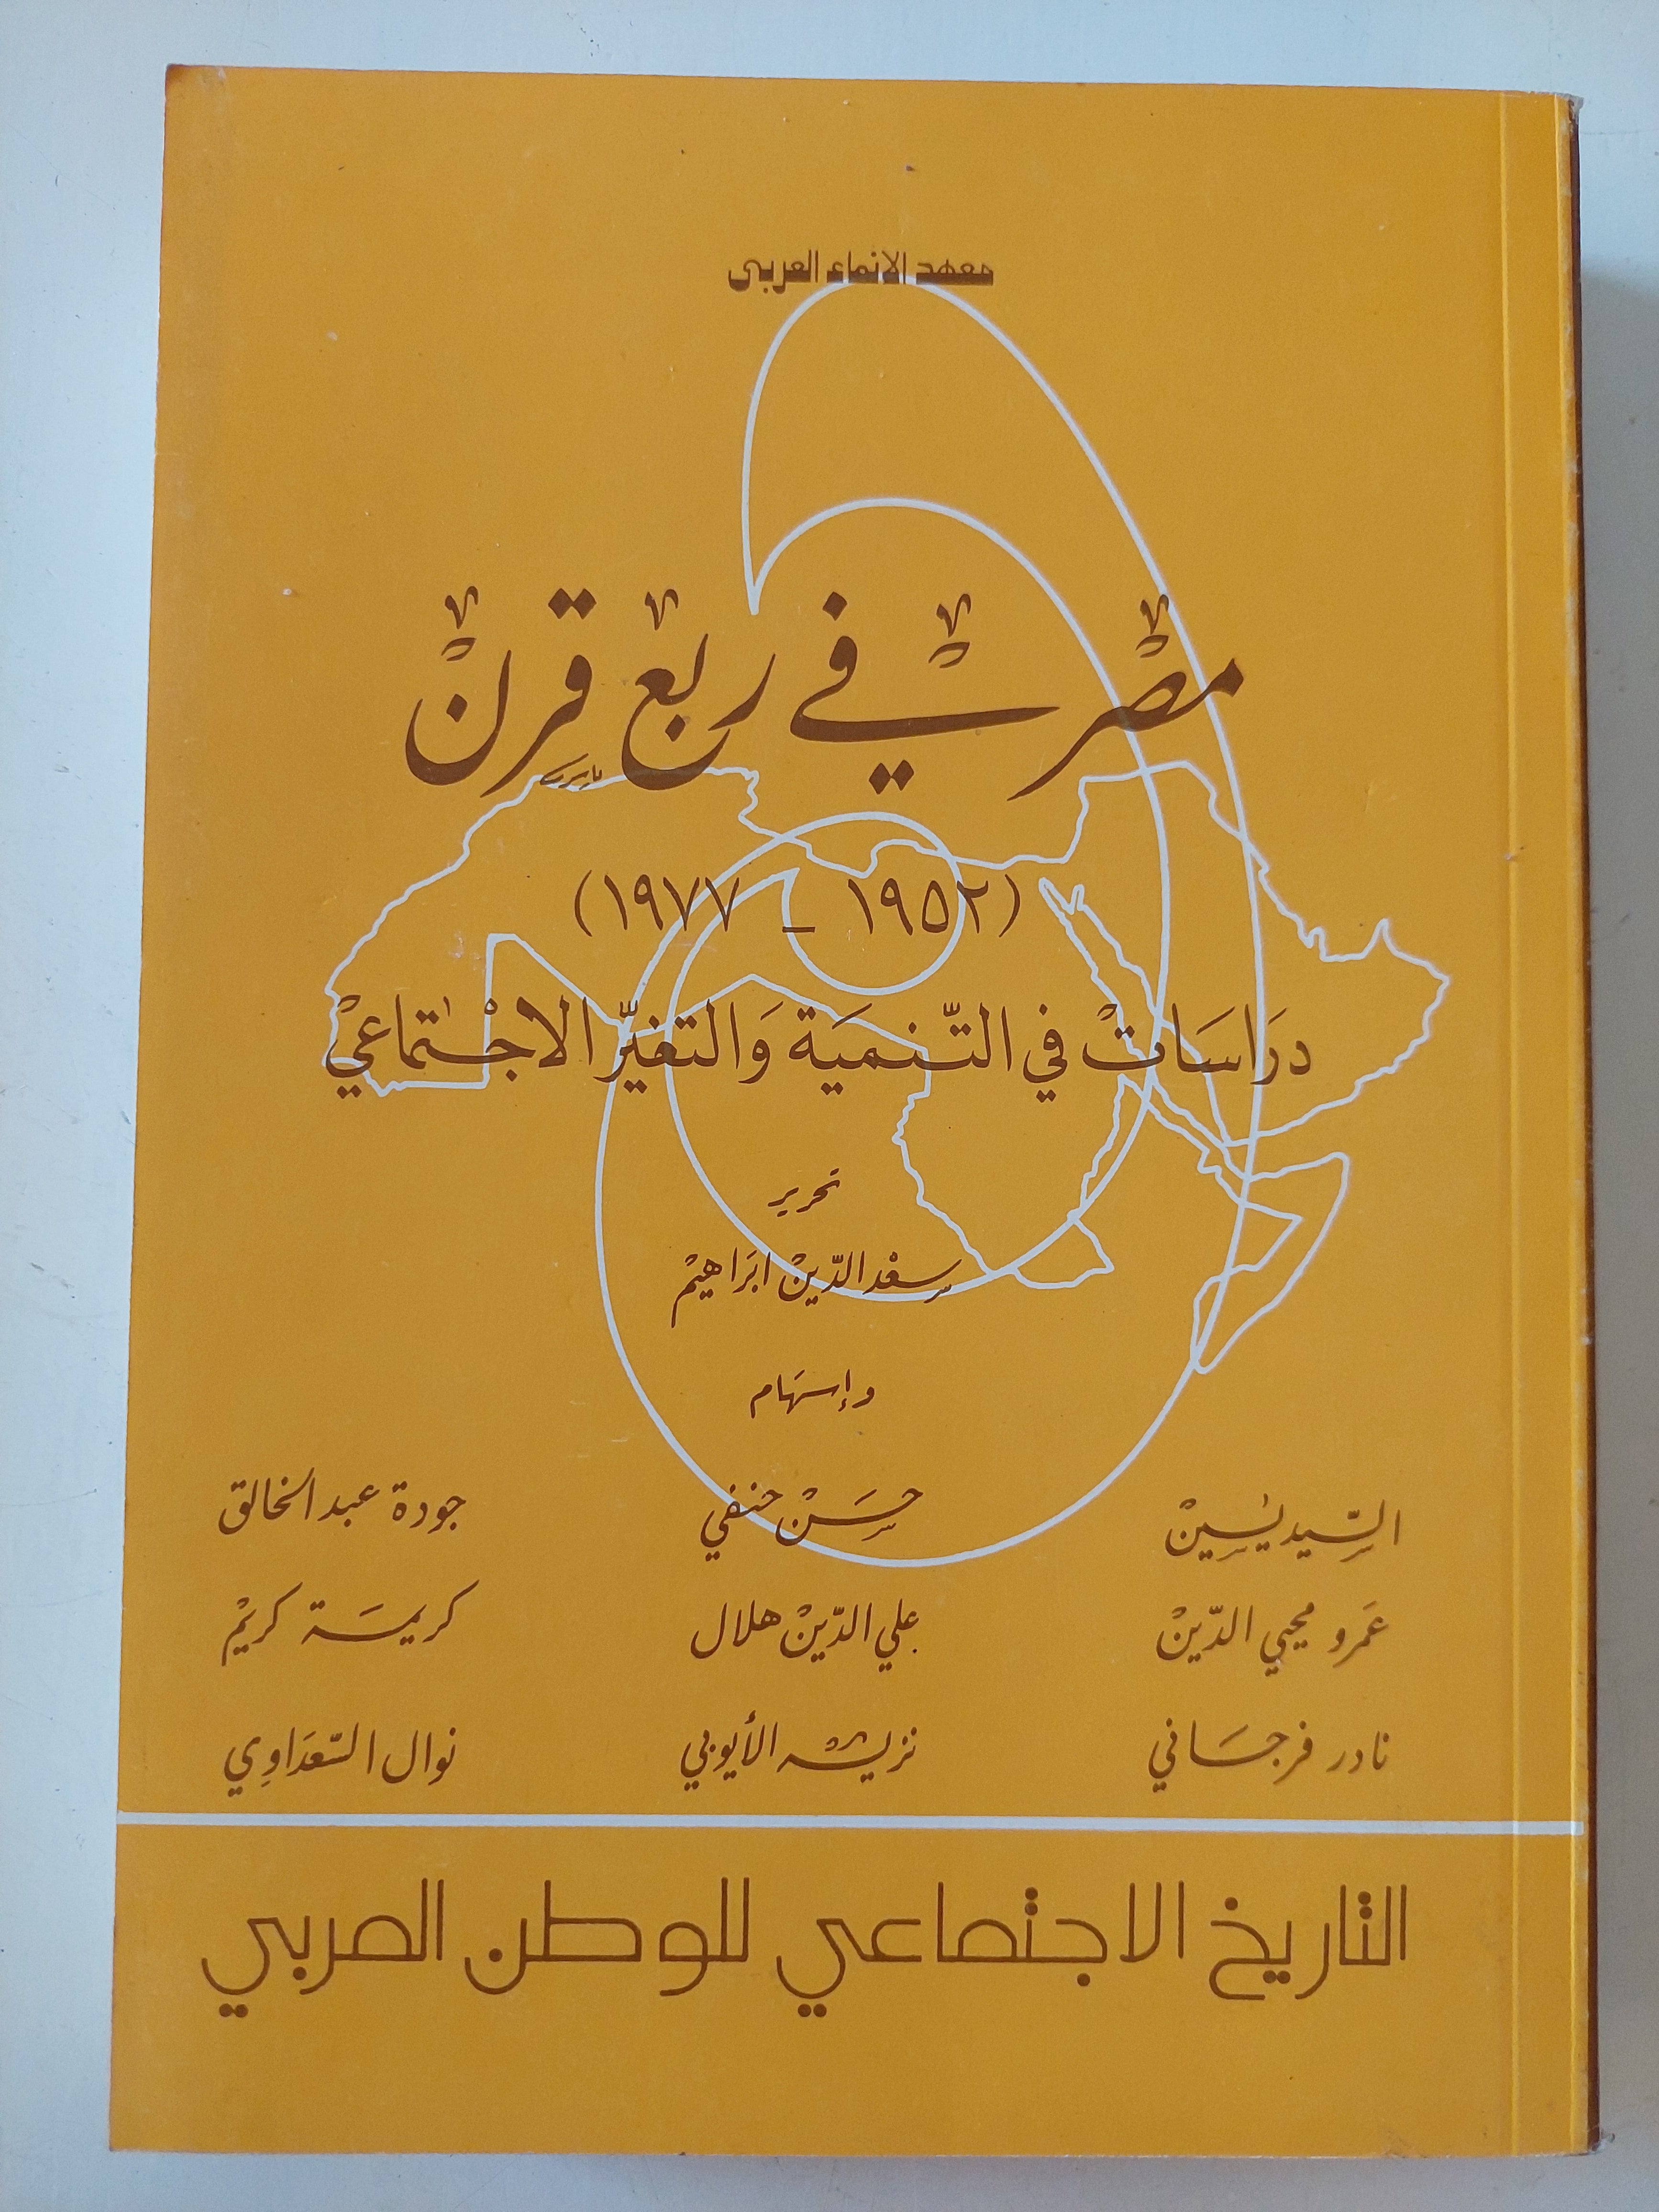 معهد الانماء العربي
مصر في ربع قرن
(١٩٥٢ _ ١٩٧٧)
دراسات في التنمية والتغير الاجتماعي
تحرير
سعد الدين ابراهيم
وإسهام
السيد يسين حسن حنفي جودة عبد الخالق
عمرو محيي الدين علي الدين هلال كريمة كريم
نادر فرجاني نزيه الأيوبي نوال السعداوي
التاريخ الاجتماعي للوطن العربي